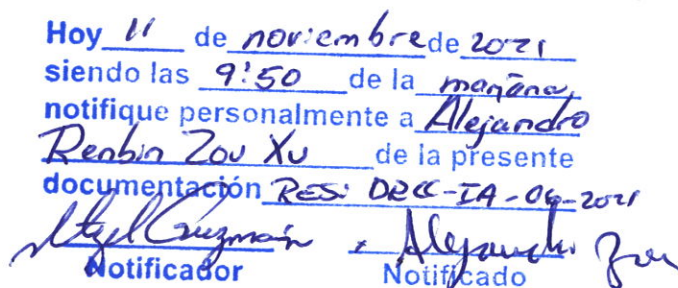 Hoy 11 de noviembre de 2021
siendo las 9:50 de la mañana,
notifique personalmente a Alejandro
Renbin Zou Xu de la presente
documentación RES: DRCC-IA-04-2021
Itzel Guzmán Alejandro Zou
Notificador Notificado